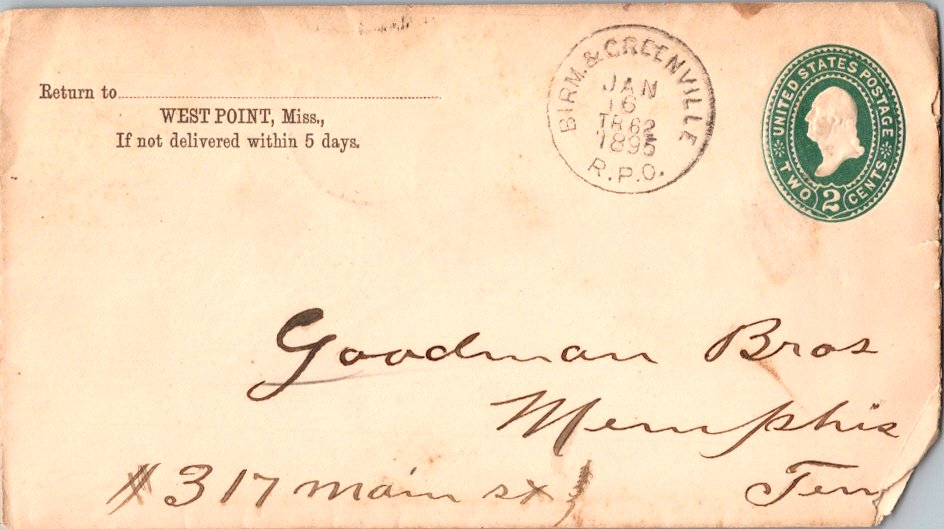 Return to
WEST POINT, Miss.,
If not delivered within 5 days.
BIRM. & GREENVILLE
JAN
16
TR 62
1895
R.P.O.
UNITED STATES POSTAGE
TWO 2 CENTS
Goodman Bros
Memphis
# 317 main st Ten